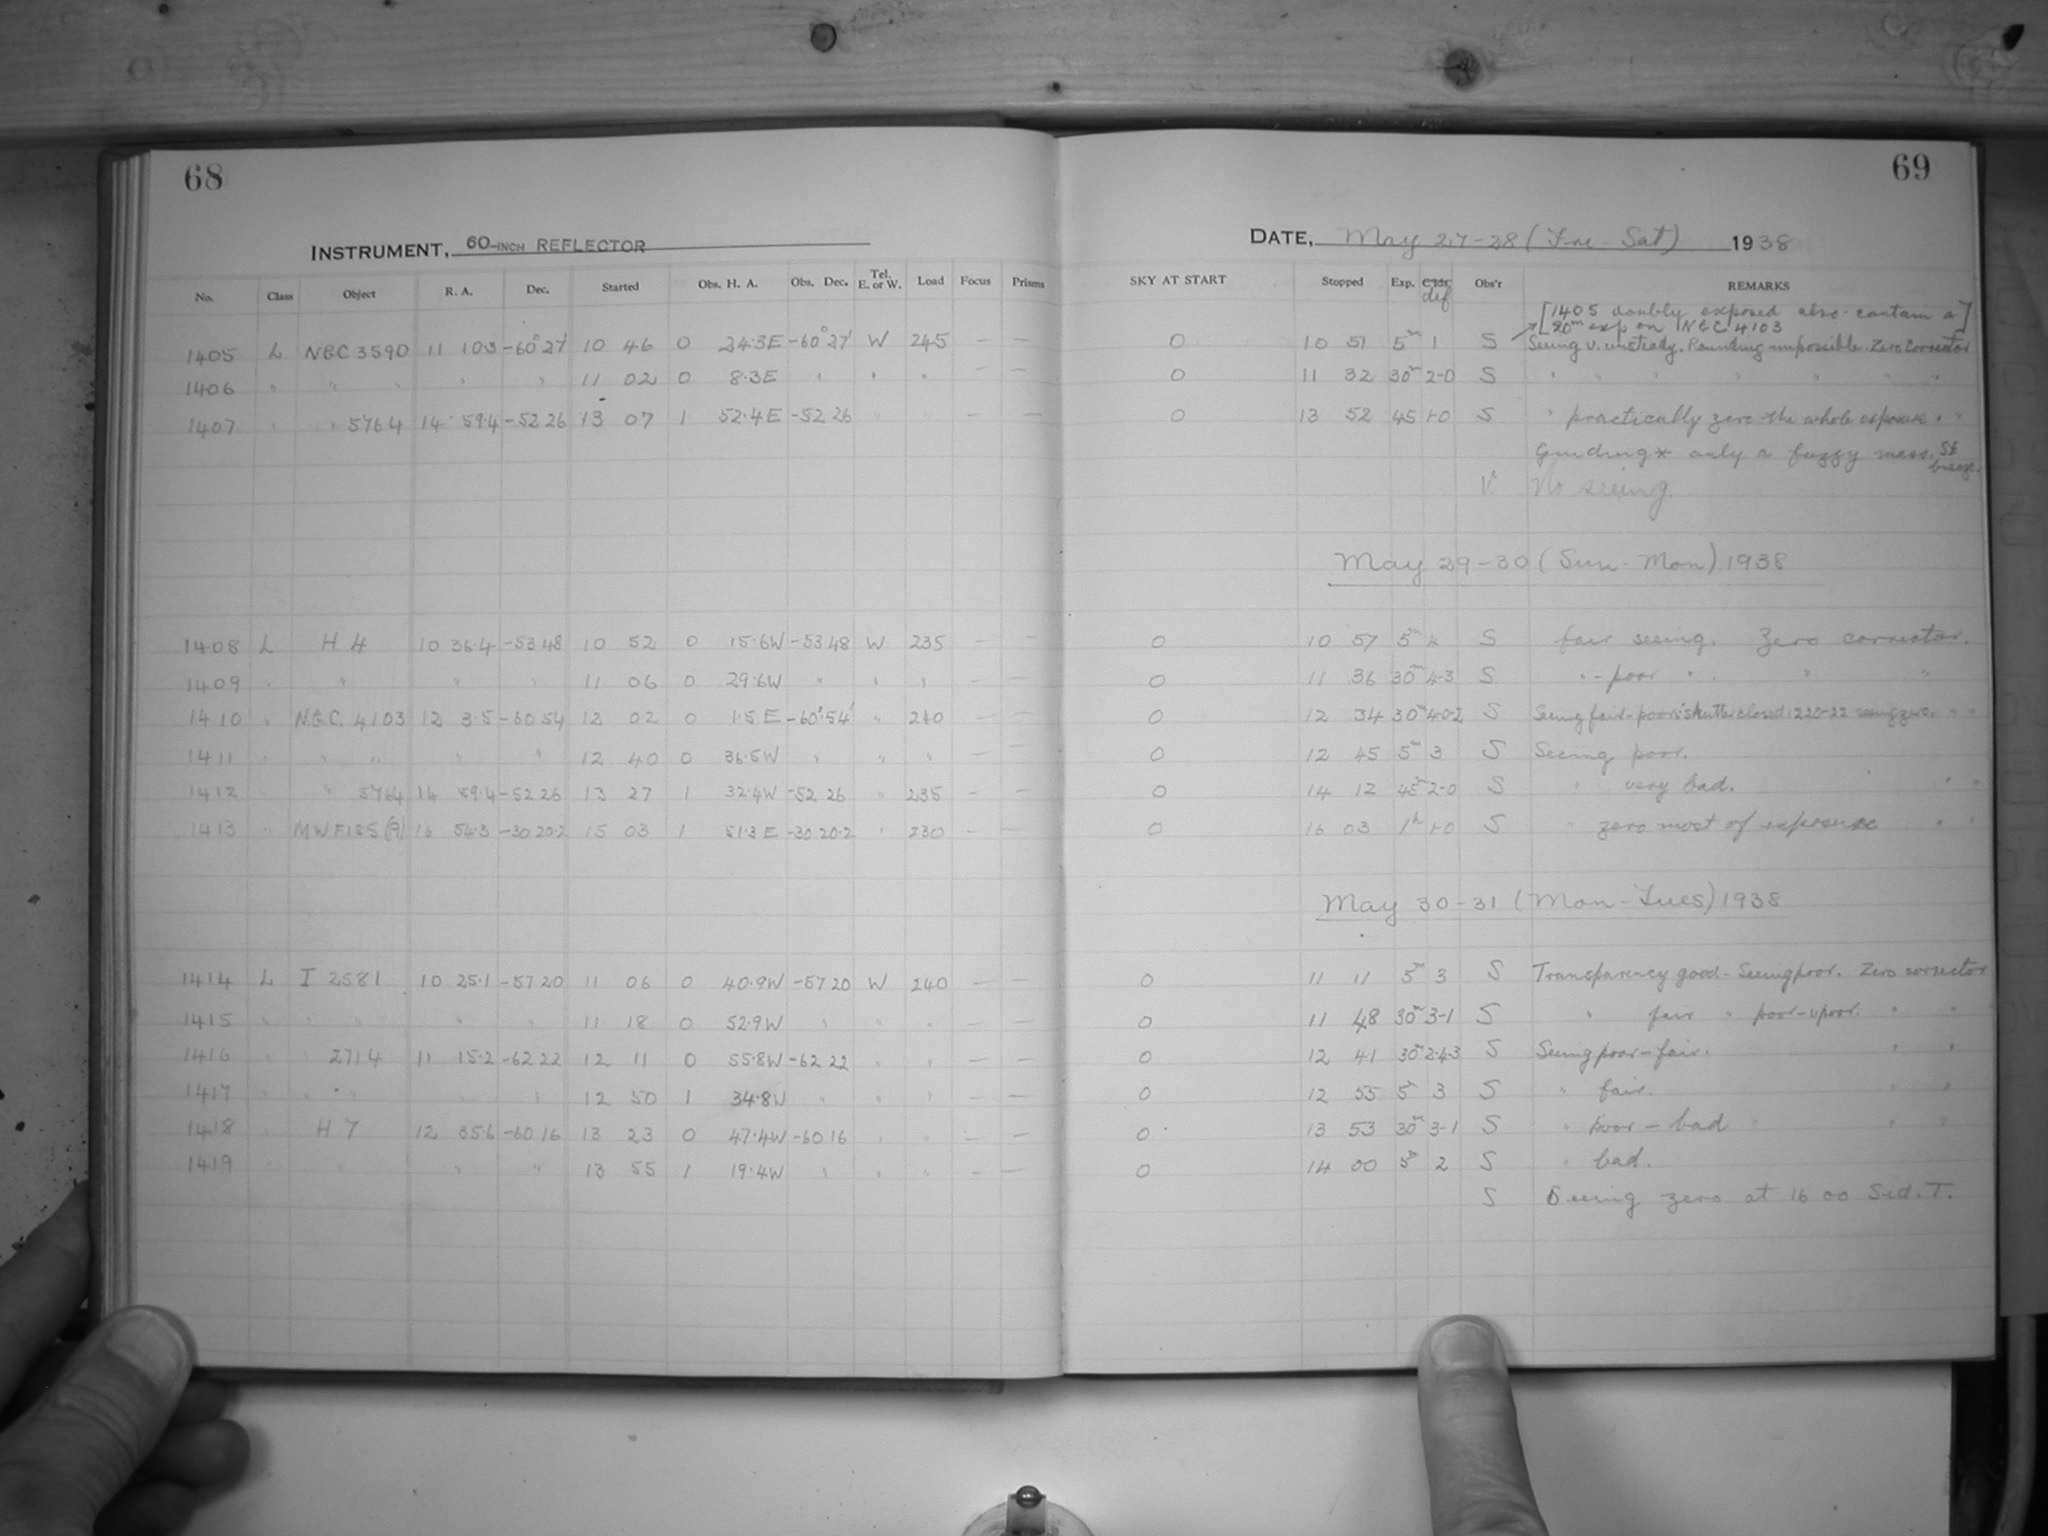 68
INSTRUMENT, 60-INCH REFLECTOR
No. Class Object R. A. Dec. Started Obs. H. A. Obs. Dec. Tel. E. or W. Load Focus Prisms
1405 L NGC 3590 11 10.3 -60° 27' 10 46 0 24.3E -60° 27' W 245 — —
1406 " " " " " 11 02 0 8.3E " " " — —
1407 " " 5764 14 59.4 -52 26 13 07 1 52.4E -52 26 " " — —
1408 L H 4 10 36.4 -53 48 10 52 0 15.6W -53 48 W 235 — —
1409 " " " " 11 06 0 29.6W " " " — —
1410 " NGC. 4103 12 3.5 -60 54 12 02 0 1.5E -60° 54' " 240 — —
1411 " " " " " 12 40 0 36.5W " " " — —
1412 " " 5764 14 59.4 -52 26 13 27 1 32.4W -52 26 " 235 — —
1413 " MWF185(9) 16 54.3 -30 20.2 15 03 1 51.3E -30 20.2 " 230 — —
1414 L I 2581 10 25.1 -57 20 11 06 0 40.9W -57 20 W 240 — —
1415 " " " " " 11 18 0 52.9W " " " — —
1416 " " 2714 11 15.2 -62 22 12 11 0 55.8W -62 22 " " — —
1417 " " " " " 12 50 1 34.8W " " " — —
1418 " H 7 12 35.6 -60 16 13 23 0 47.4W -60 16 " " — —
1419 " " " " 13 55 1 19.4W " " " — —
69
DATE, May 27-28 (Fri - Sat) 1938
SKY AT START Stopped Exp. def Obs'r REMARKS
[1405 doubly exposed also contain a
20m exp on NGC 4103]
0 10 51 5m 1 S Seeing v. unsteady. Rounding impossible. Zero Corrector
0 11 32 30m 2-0 S " " " " " " "
0 13 52 45 1-0 S " practically zero the whole exposure. " "
Guiding * only a fuzzy mass. SE breeze.
V. No seeing.
May 29-30 (Sun-Mon) 1938
0 10 57 5m 4 S fair seeing. Zero corrector.
0 11 36 30m 4-3 S " -poor " . " "
0 12 34 30m 4-0-2 S Seeing fair-poor. Shutter closed 1220-22 seeing zero. " "
0 12 45 5m 3 S Seeing poor.
0 14 12 45m 2-0 S " very bad. " "
0 16 03 1h 1-0 S " zero most of exposure " "
May 30-31 (Mon-Tues) 1938
0 11 11 5m 3 S Transparency good - Seeing poor. Zero corrector
0 11 48 30m 3-1 S " fair " poor-v poor. " "
0 12 41 30m 2-4-3 S Seeing poor-fair. " "
0 12 55 5 3 S " fair. " "
0 13 53 30m 3-1 S " poor - bad " " "
0 14 00 5m 2 S " bad.
S Seeing zero at 16 00 Sid. T.